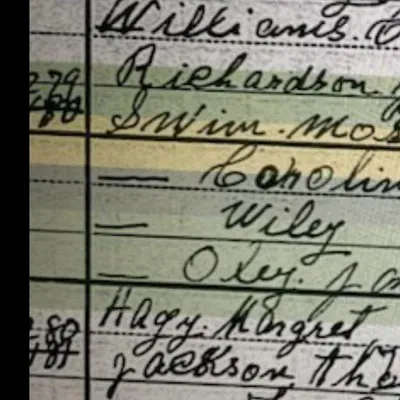 Williams.
Richardson.
Swim. Mos
— Carolin
— Wiley
— Oley. J
Hagy. Margret
Jackson, Tho